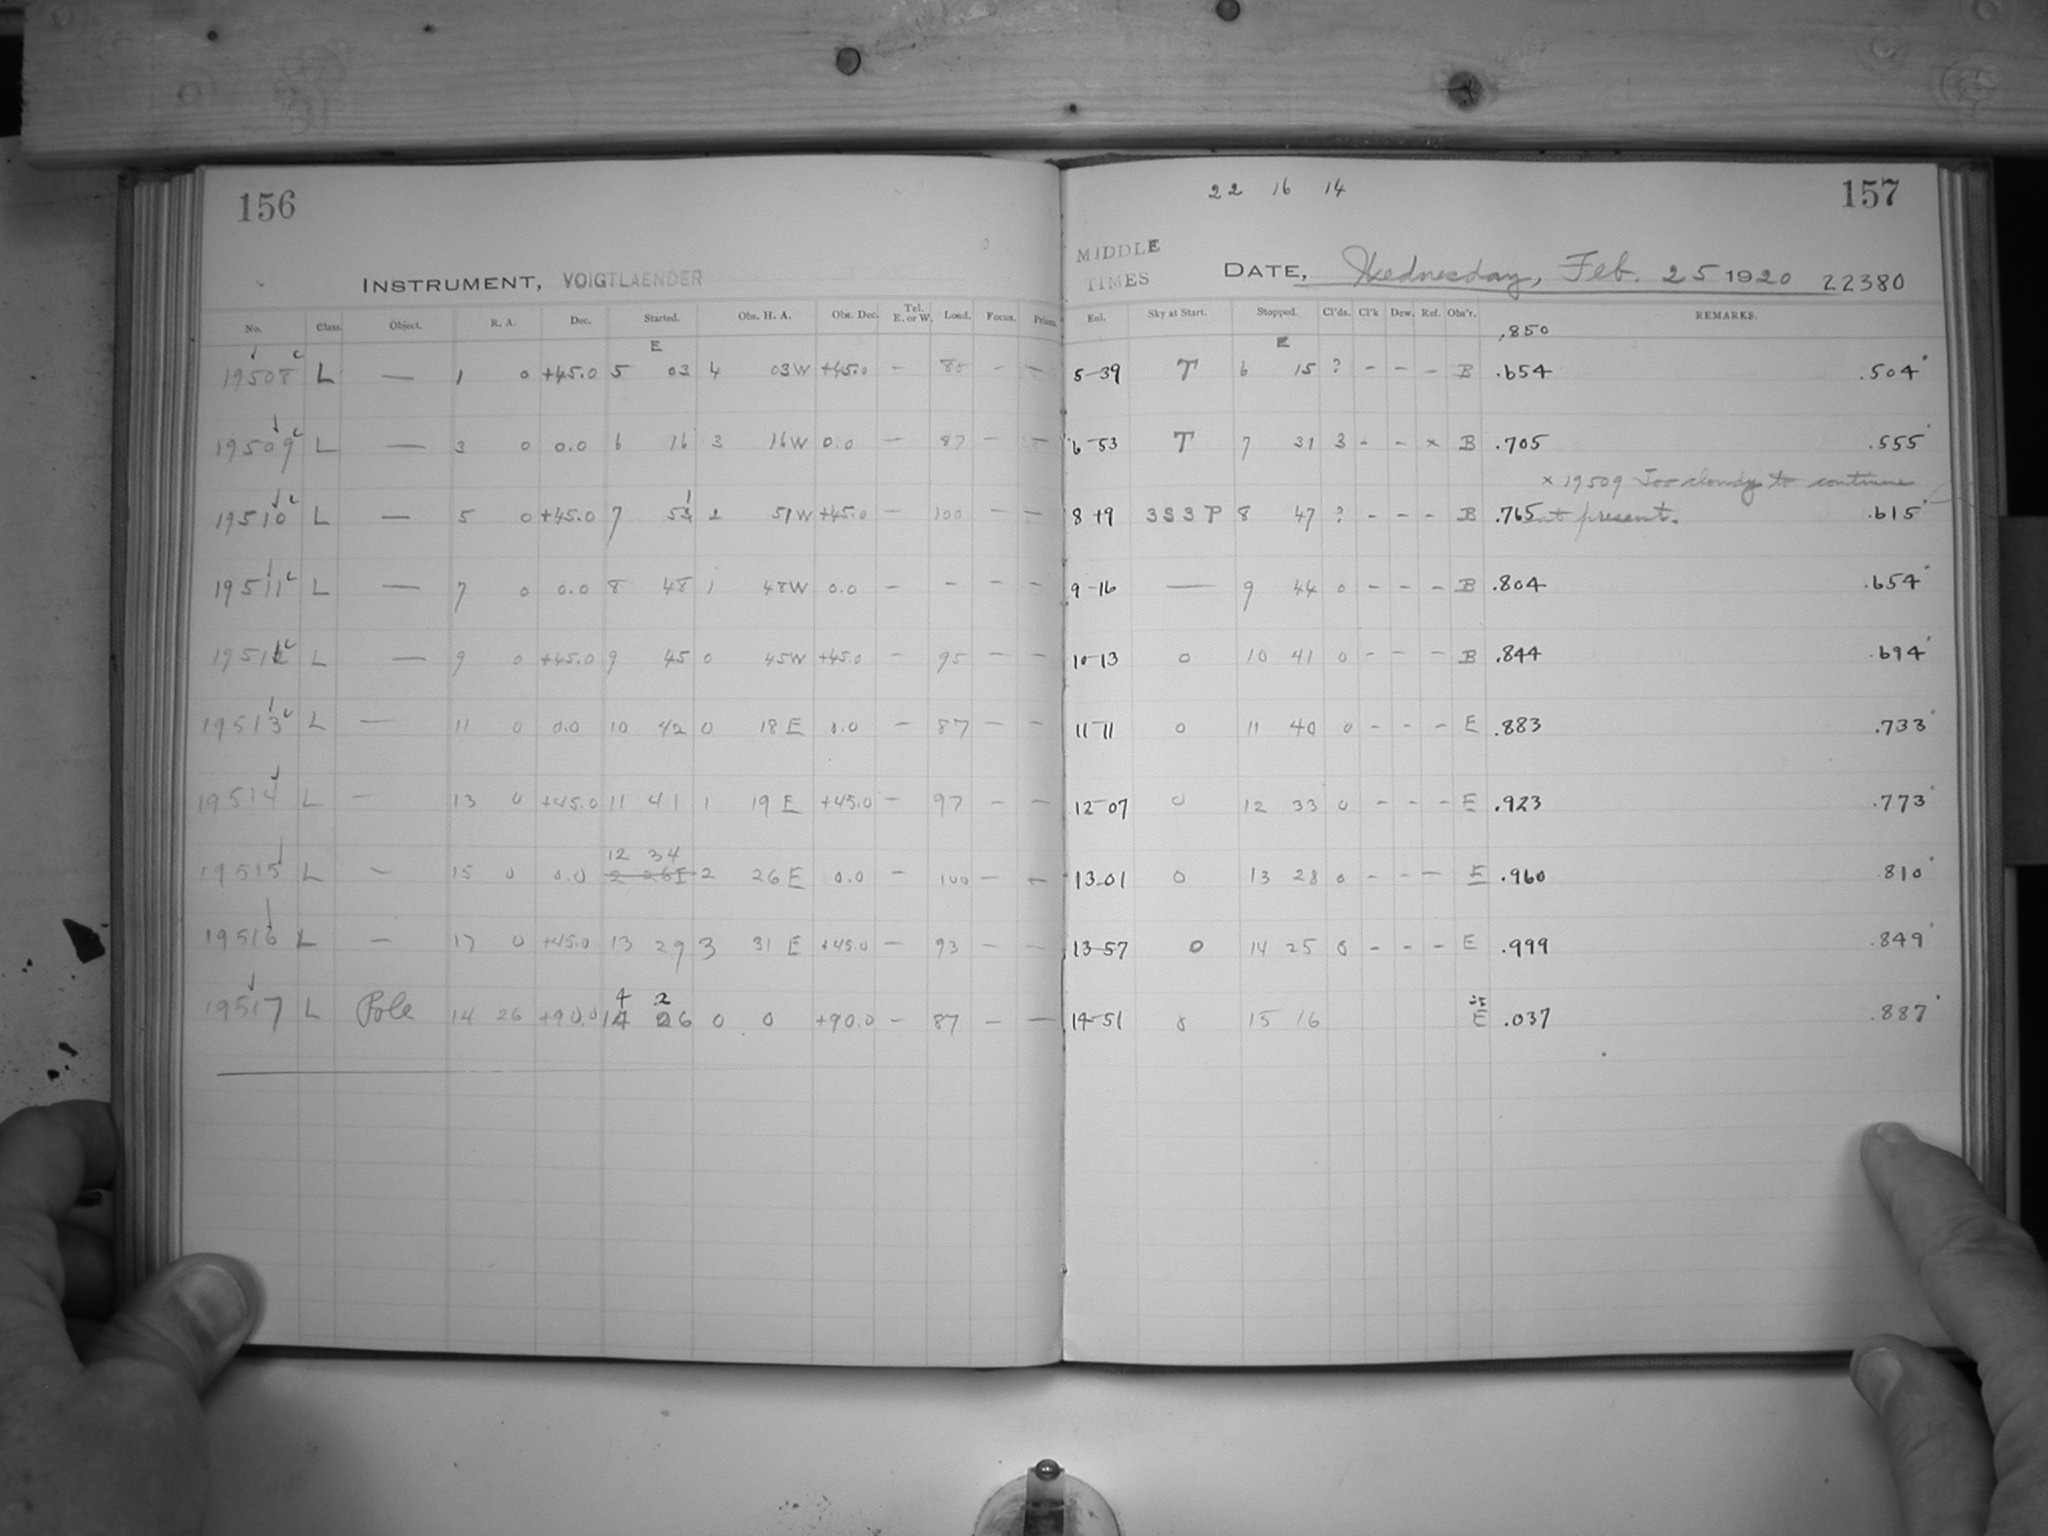 156
INSTRUMENT, VOIGTLAENDER
No. Class. Object. R. A. Dec. Started. Obs. H. A. Obs. Dec. Tel. E. or W. Load. Focus. Prism.
E
19508 c L — 1 0 +45.0 5 03 4 03W +45.0 - 85 - -
19509 c L — 3 0 0.0 6 16 3 16W 0.0 - 87 - -
19510 c L — 5 0 +45.0 7 51 2 51W +45.0 - 100 - -
19511 c L — 7 0 0.0 8 48 1 48W 0.0 - - - -
19512 c L — 9 0 +45.0 9 45 0 45W +45.0 - 95 - -
19513 c L — 11 0 0.0 10 42 0 18 E 0.0 - 87 - -
19514 L — 13 0 +45.0 11 41 1 19 E +45.0 - 97 - -
12 34
19515 L — 15 0 0.0 2 26E 2 26 E 0.0 - 100 - -
19516 L — 17 0 +45.0 13 29 3 31 E +45.0 - 93 - -
4 2
19517 L Pole 14 26 +90.0 14 26 0 0 +90.0 - 87 - -
22 16 14
157
MIDDLE
TIMES
DATE, Wednesday, Feb. 25 1920 22380
Eul. Sky at Start. Stopped. Cl'ds. Cl'k Dew. Ref. Obs'r. REMARKS.
E .850
5-39 T 6 15 ? - - - B .654 .504
6-53 T 7 31 3 - - x B .705 .555
x 19509 Too cloudy to continue
8 19 3S3P 8 47 ? - - - B .765 at present. .615
9-16 — 9 44 0 - - - B .804 .654
10-13 0 10 41 0 - - - B .844 .694
11-11 0 11 40 0 - - - E .883 .733
12-07 0 12 33 0 - - - E .923 .773
13-01 0 13 28 0 - - - E .960 810
13-57 0 14 25 0 - - - E .999 .849
14-51 15 16 E .037 .887